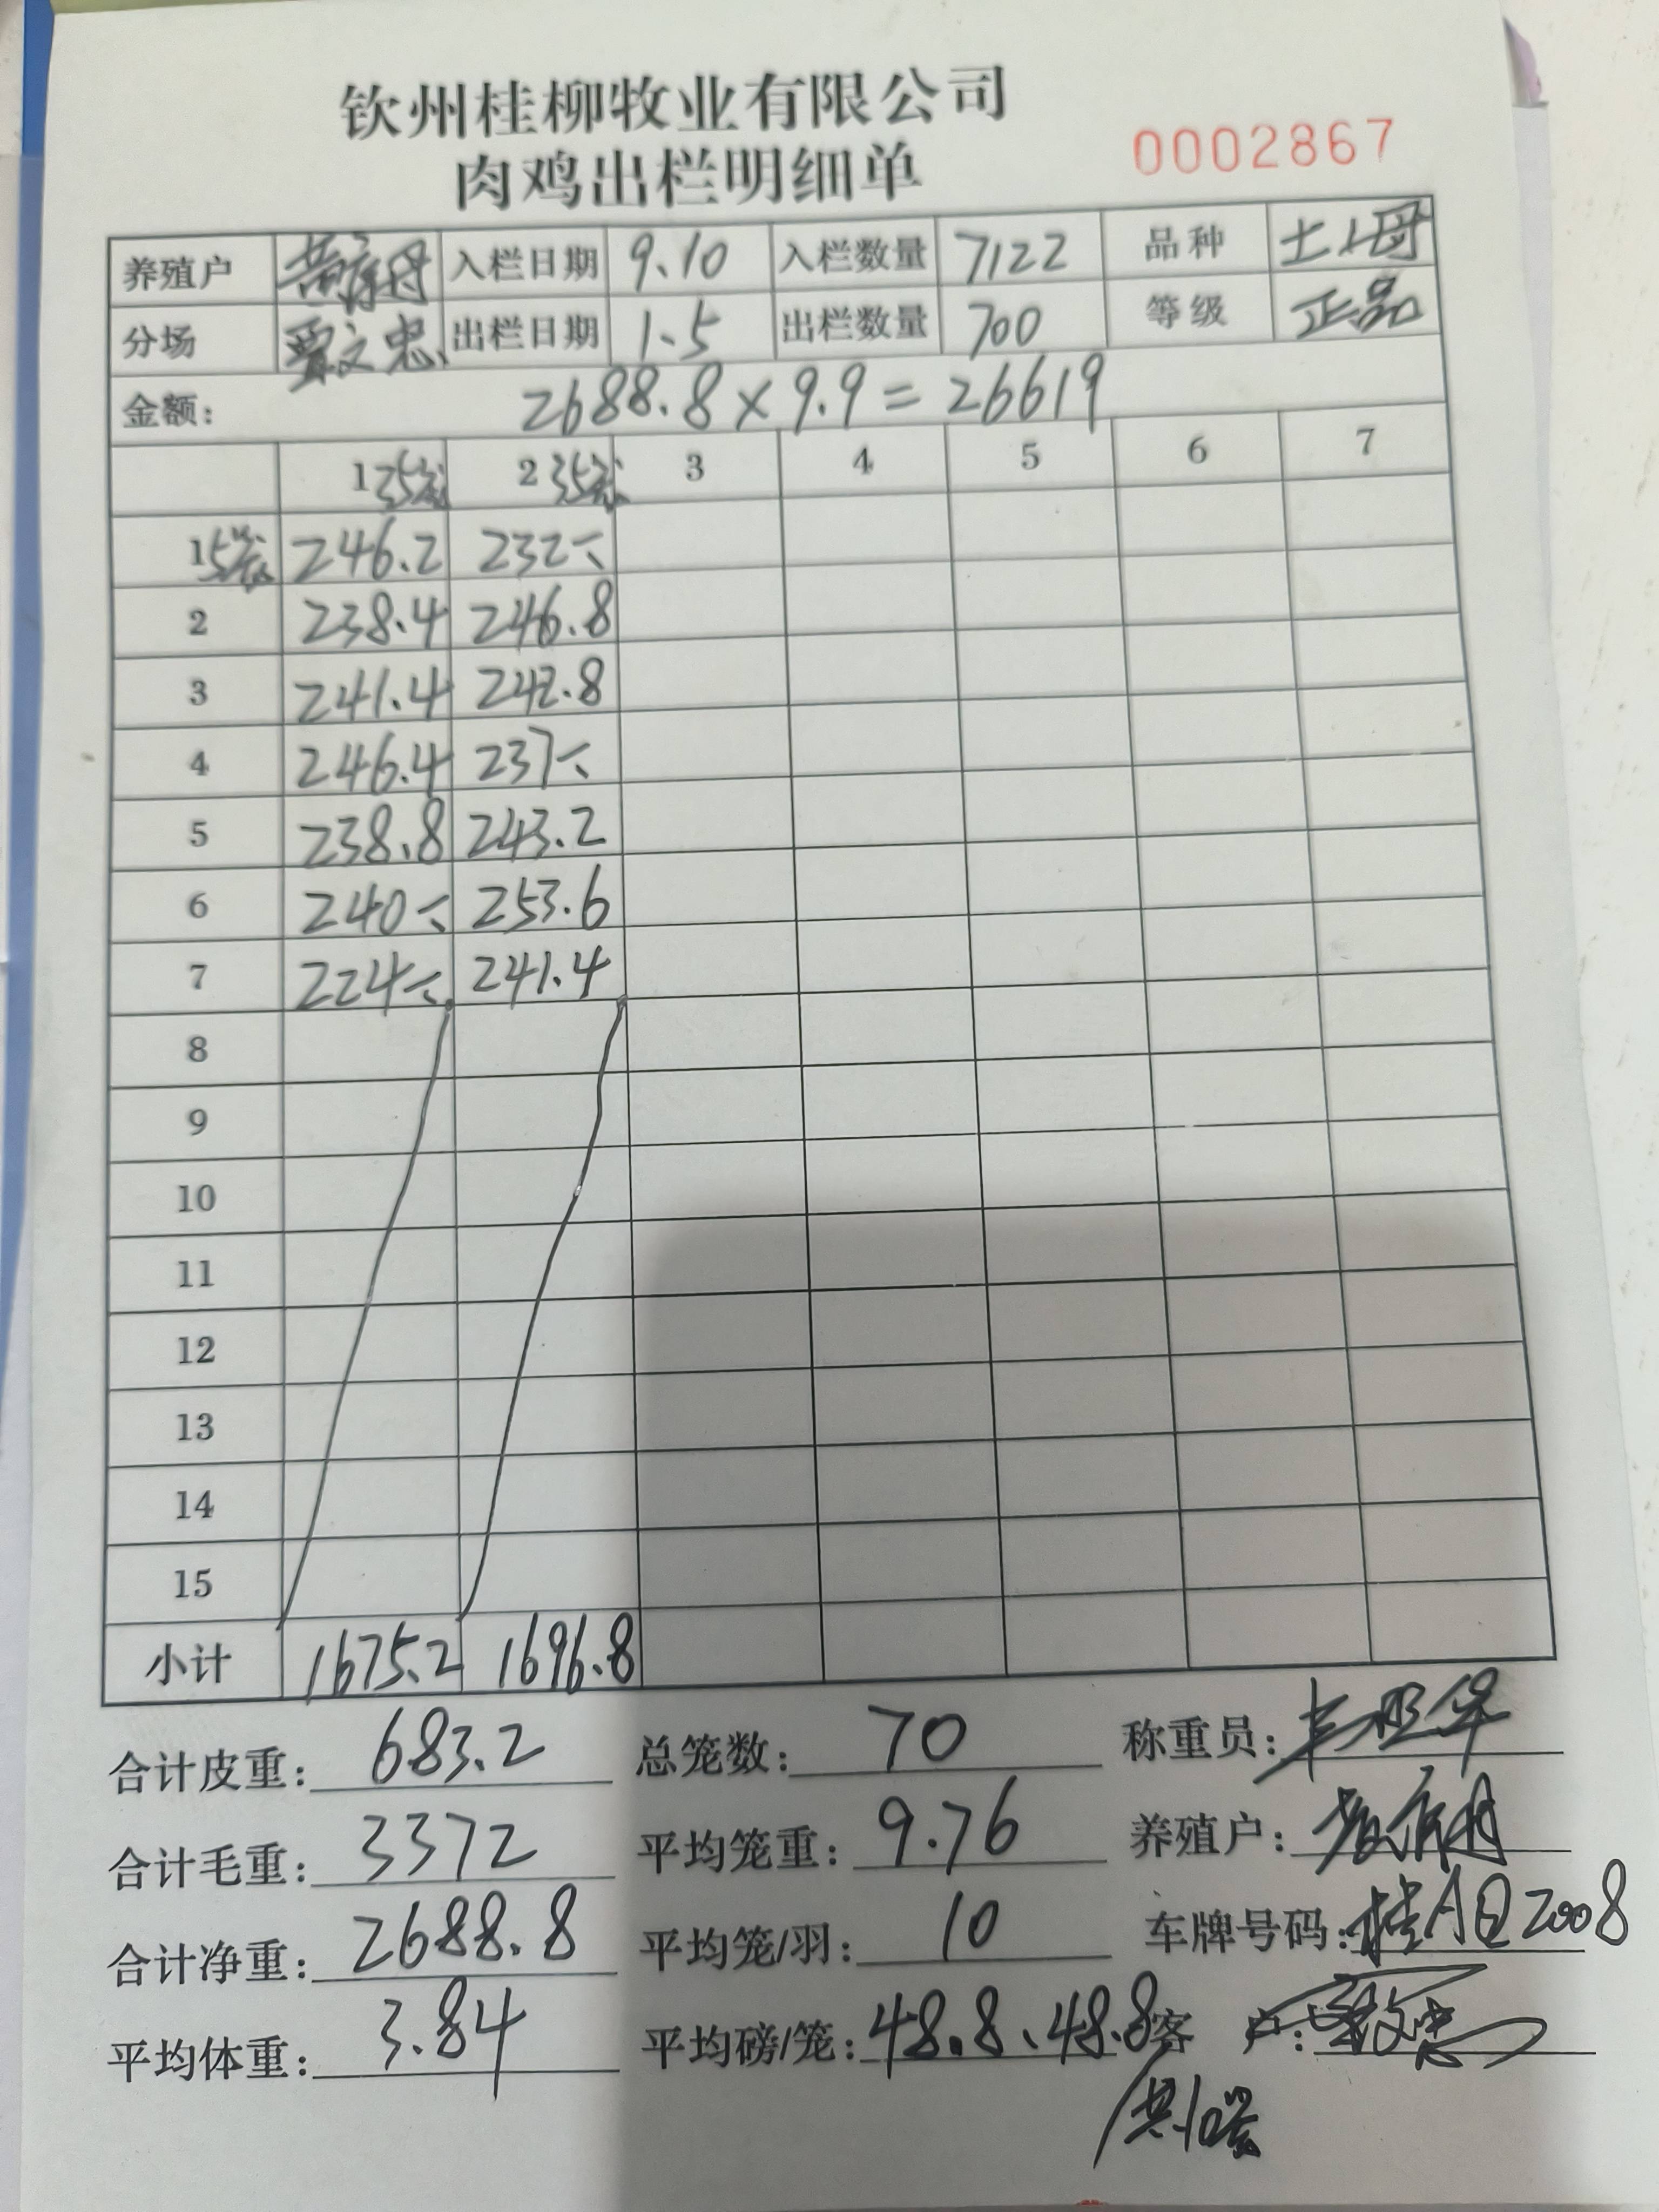 钦州桂柳牧业有限公司
肉鸡出栏明细单
0002867
养殖户 入栏日期 9.10 入栏数量 7122 品种 土2母
分场 贾文忠 出栏日期 1.5 出栏数量 700 等级 正品
金额: 2688.8×9.9=26619
1 35 2 35 3 4 5 6 7
1 5 246.2 232
2 238.4 246.8
3 241.4 242.8
4 246.4 237
5 238.8 243.2
6 240 253.6
7 224 241.4
8
9
10
11
12
13
14
15
小计 1675.2 1696.8
合计皮重: 683.2 总笼数: 70 称重员:
合计毛重: 3372 平均笼重: 9.76 养殖户:
合计净重: 2688.8 平均笼/羽: 10 车牌号码: 桂AQ2008
平均体重: 3.84 平均磅/笼: 48.8、48.8 客 户: